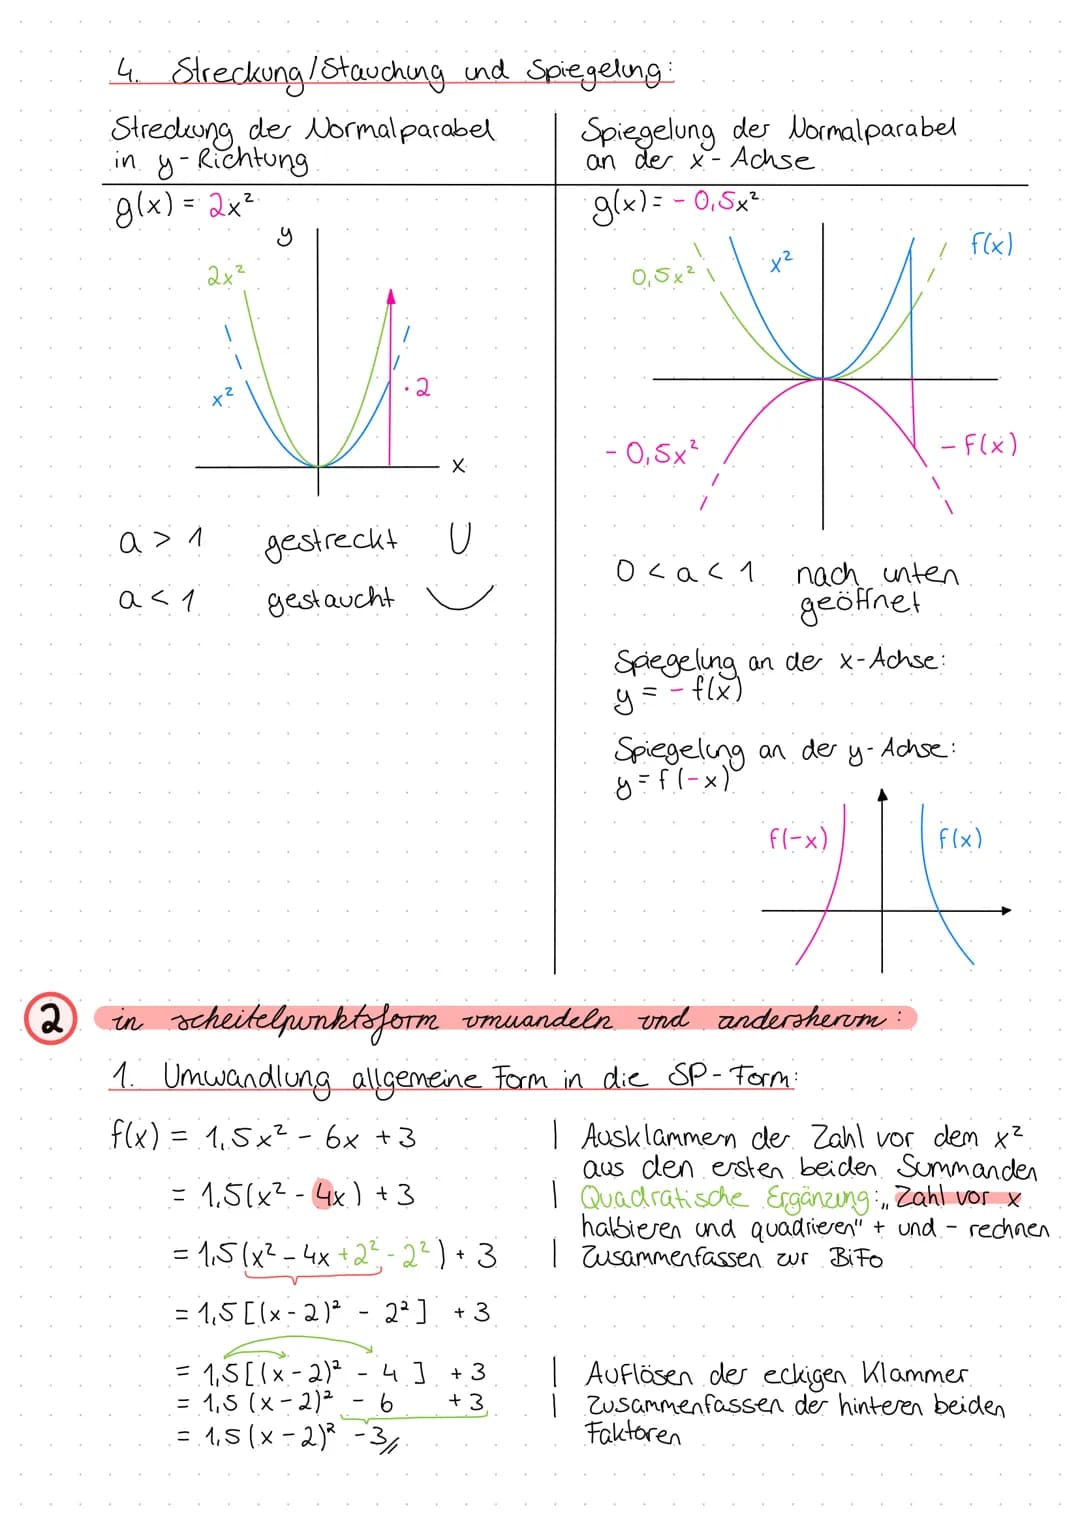 4. Streckung/Stauchung und Spiegelung:
Streckung der Normalparabel
in y-Richtung
g(x) = 2x²
y
2x²
x²
·2
x
a > 1 gestreckt
a < 1 gestaucht
Spiegelung der Normalparabel
an der x-Achse
g(x) = -0,5x²
f(x)
x²
0,5x²
-0,5x²
-f(x)
0 < a < 1 nach unten
geöffnet
Spiegelung an der x-Achse:
y = -f(x)
Spiegelung an der y-Achse:
y = f(-x)
f(-x)
f(x)
2 in scheitelpunktsform umwandeln und andersherum:
1. Umwandlung allgemeine Form in die SP-Form:
f(x) = 1,5x² - 6x + 3 | Ausklammern der Zahl vor dem x²
aus den ersten beiden Summanden
= 1,5(x² - 4x) + 3 | Quadratische Ergänzung: „Zahl vor x
halbieren und quadrieren" + und - rechnen
= 1,5(x² - 4x + 2² - 2²) + 3 | Zusammenfassen zur BiFo
= 1,5[(x - 2)² - 2²] + 3
= 1,5[(x - 2)² - 4] + 3 | Auflösen der eckigen Klammer
= 1,5(x - 2)² - 6 + 3 | Zusammenfassen der hinteren beiden
Faktoren
= 1,5(x - 2)² - 3